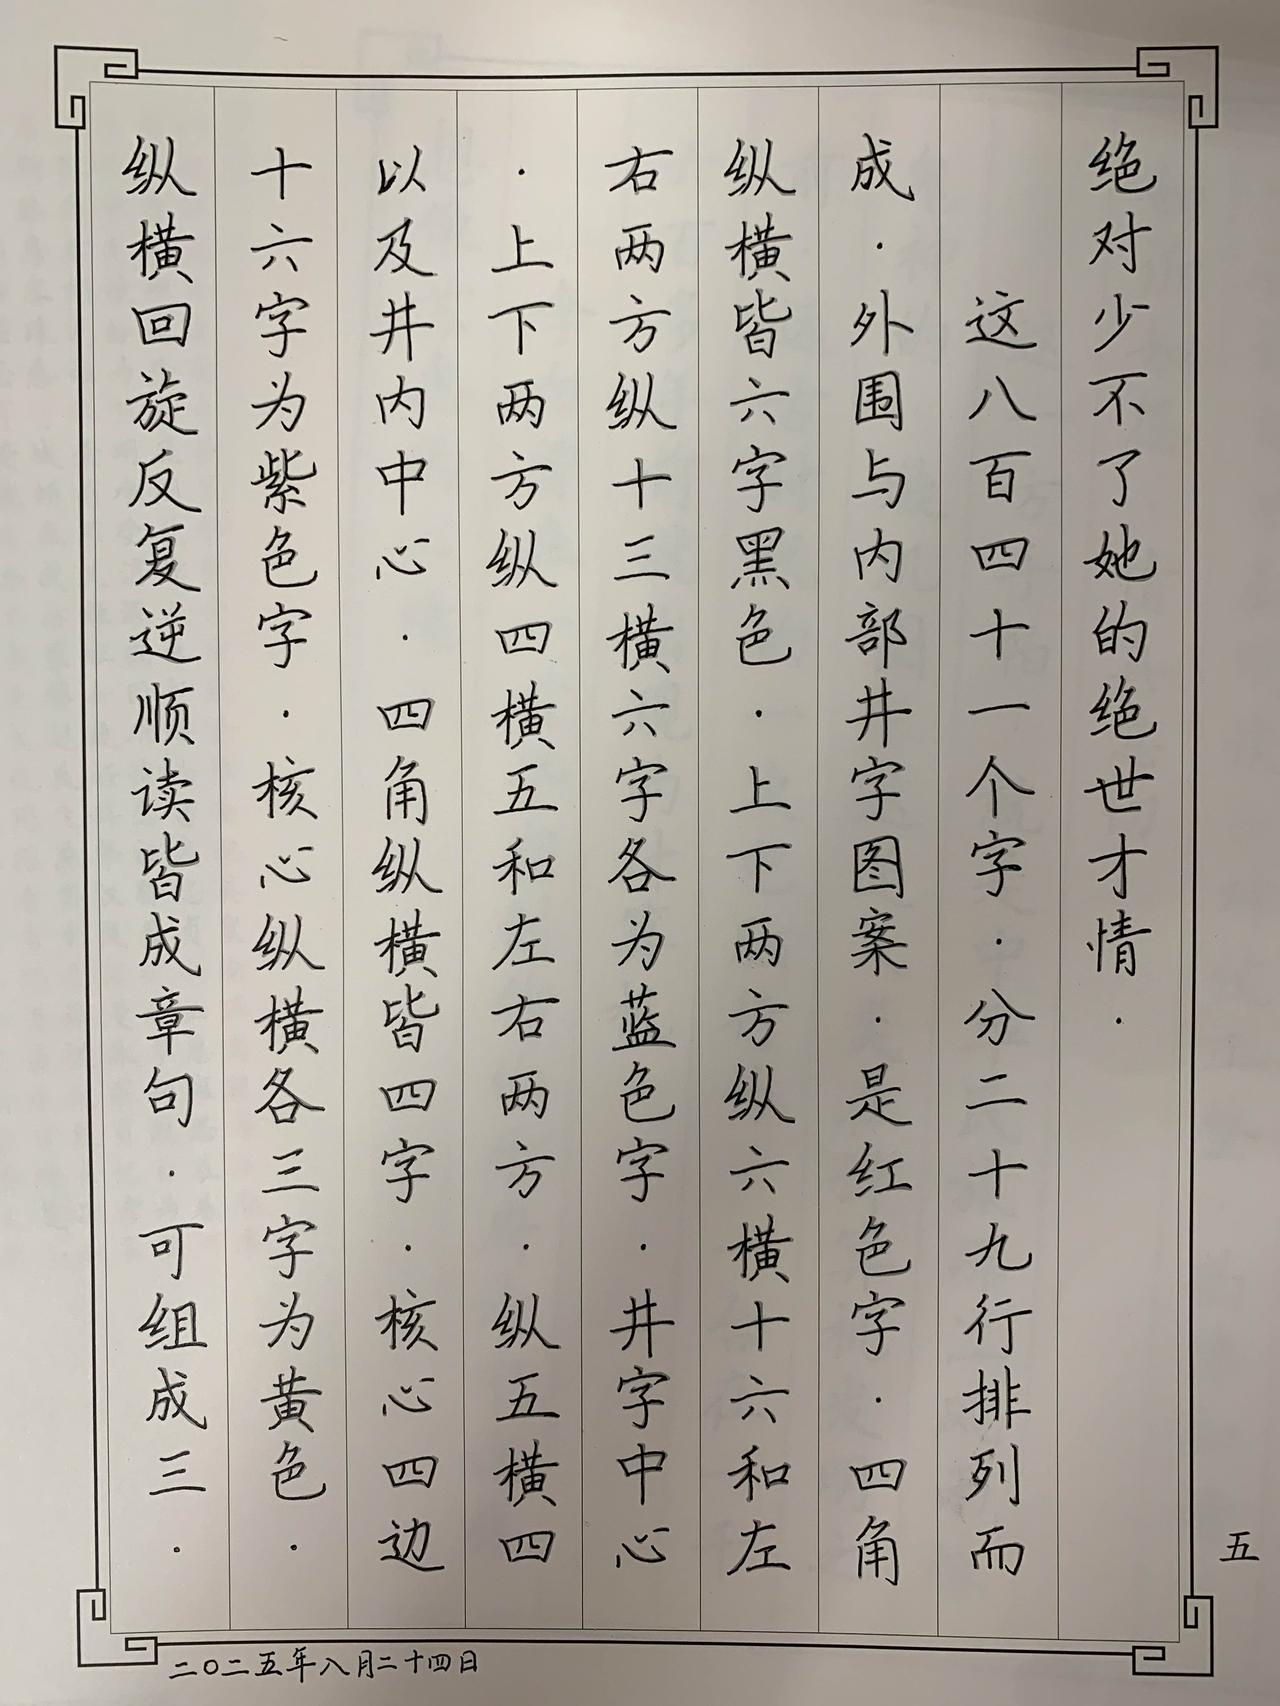 绝对少不了她的绝世才情·
这八百四十一个字·分二十九行排列而
成·外围与内部井字图案·是红色字·四角
纵横皆六字黑色·上下两方纵六横十六和左
右两方纵十三横六字各为蓝色字·井字中心
·上下两方纵四横五和左右两方·纵五横四
以及井内中心·四角纵横皆四字·核心四边
十六字为紫色字·核心纵横各三字为黄色·
纵横回旋反复逆顺读皆成章句·可组成三·
五
二〇二五年八月二十四日